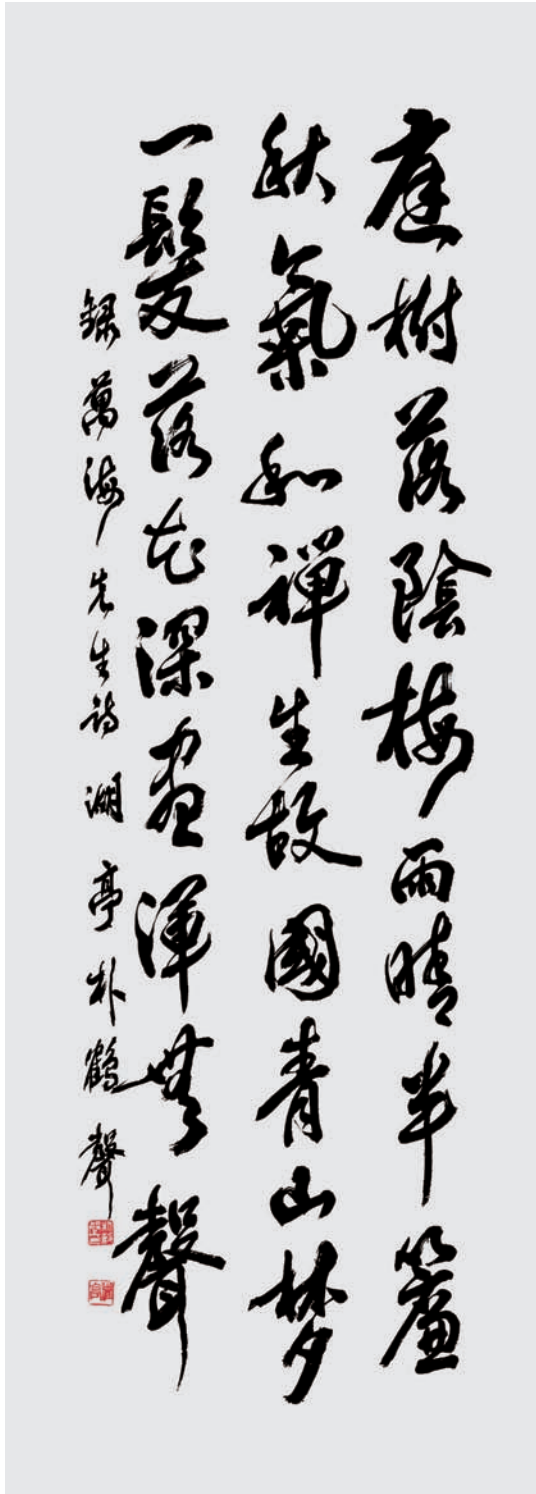 庭樹落陰梅雨晴半簾
秋氣和禪生故國青山夢
一髮落花深晝渾無聲
錄萬海先生詩 湖亭朴鶴聲